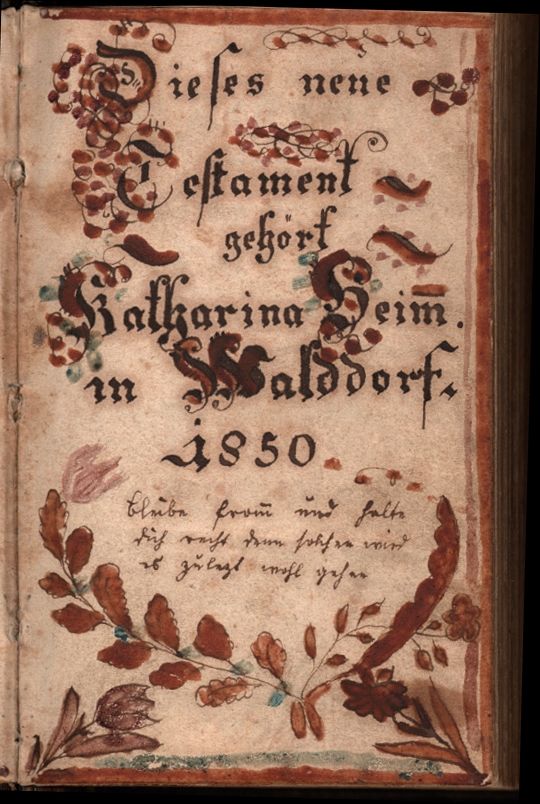 Dieses neue
Testament
gehört
Katharina Heim̅.
in Walddorf.
1850
bleibe from̅ und halte
dich recht denn solchen wird
es zulezt wohl gehen